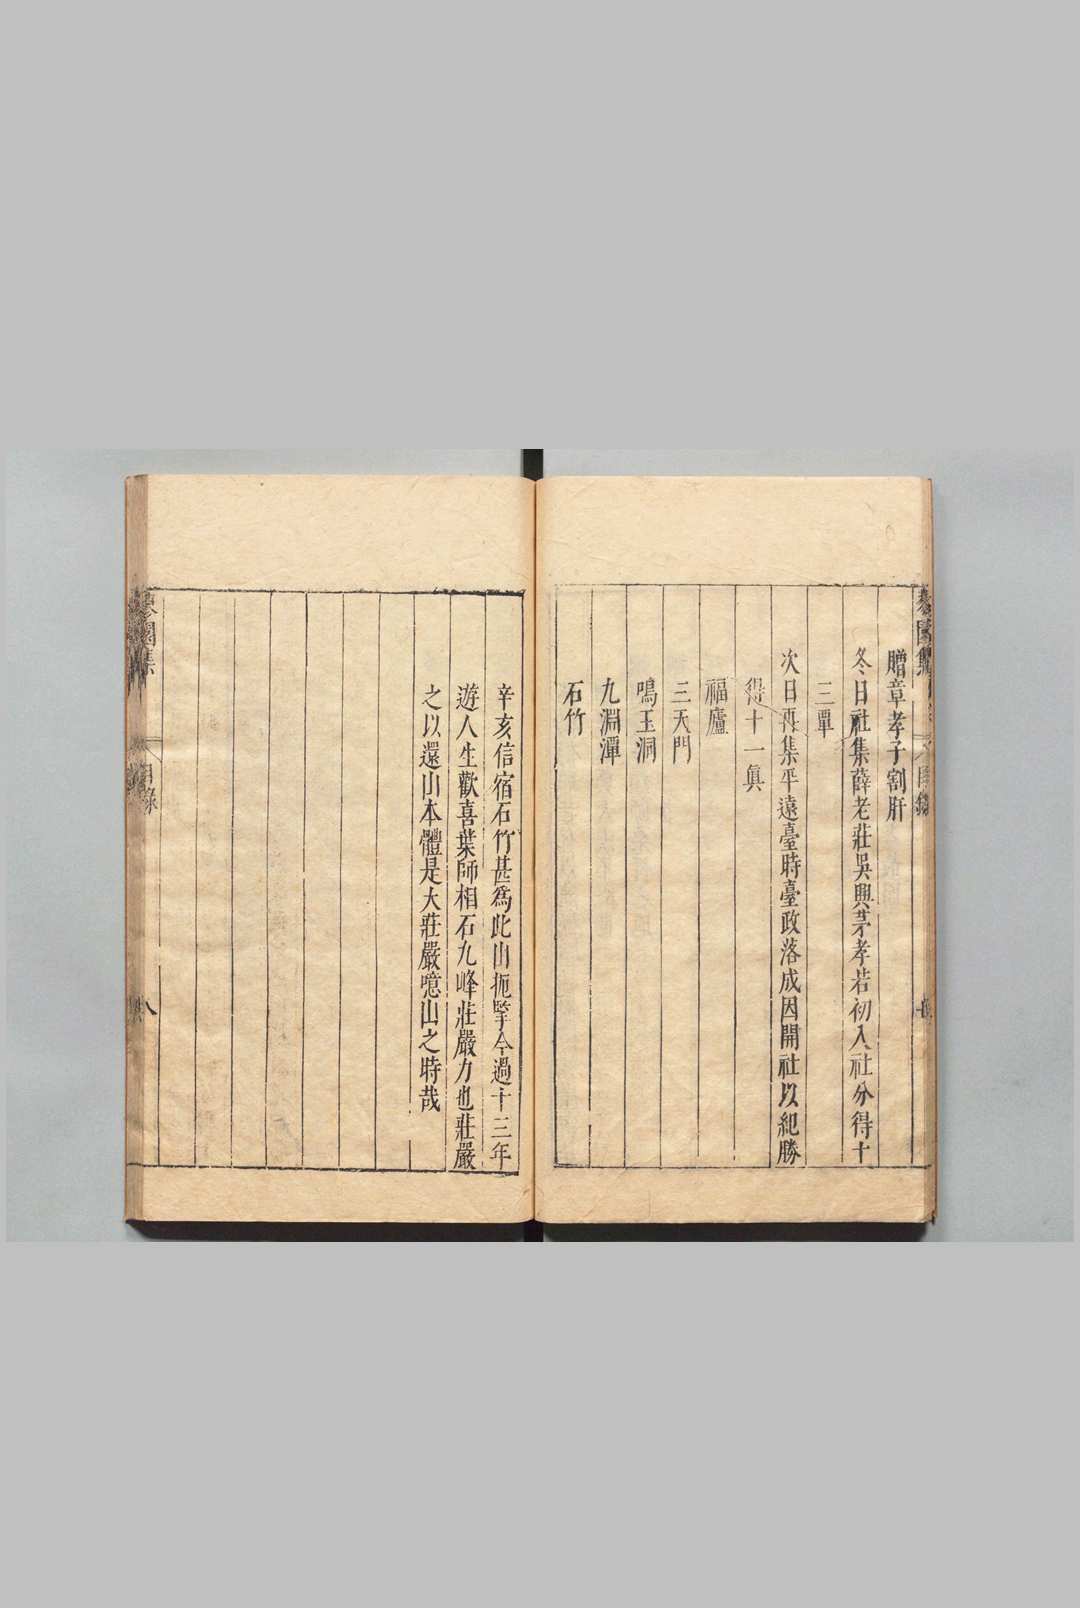 贈章孝子割肝
冬日社集薛老莊吳興茅孝若初入社分得十
三覃
次日再集平遠臺時臺政落成因開社以紀勝
得十一眞
福廬
三天門
鳴玉洞
九淵潭
石竹
辛亥信宿石竹甚爲此山扼擥今過十三年
遊人生歡喜葉師相石九峰莊嚴力也莊嚴
之以還山本體是大莊嚴噫山之時哉
集
目錄
八